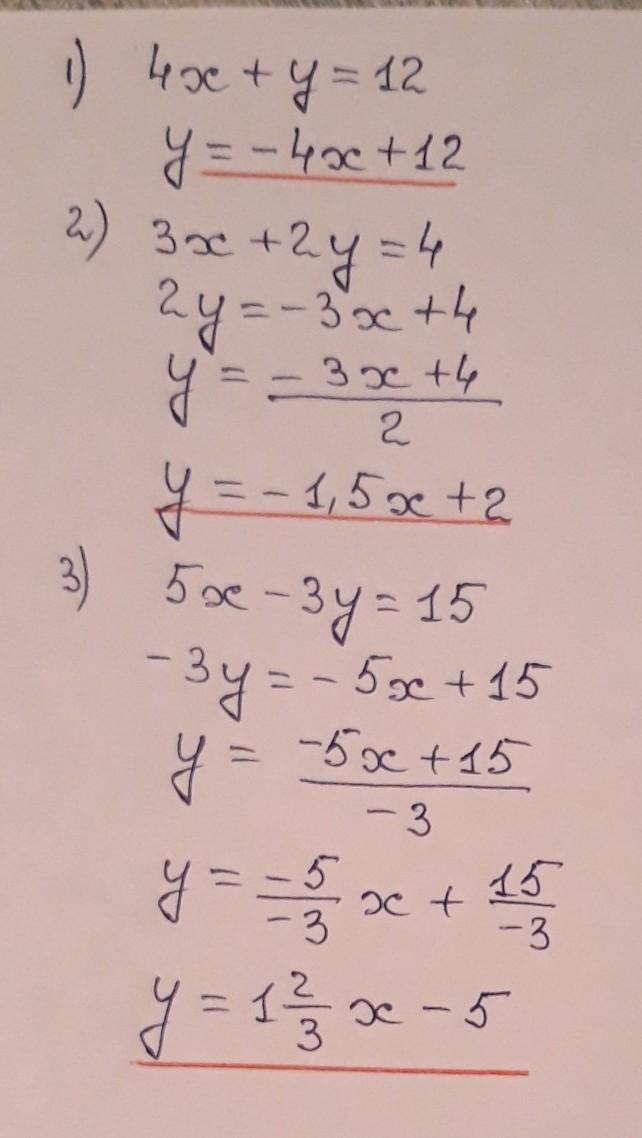 1) 4x + y = 12
y = -4x + 12
2) 3x + 2y = 4
2y = -3x + 4
y = \frac{-3x + 4}{2}
y = -1,5x + 2
3) 5x - 3y = 15
-3y = -5x + 15
y = \frac{-5x + 15}{-3}
y = \frac{-5}{-3} x + \frac{15}{-3}
y = 1\frac{2}{3} x - 5